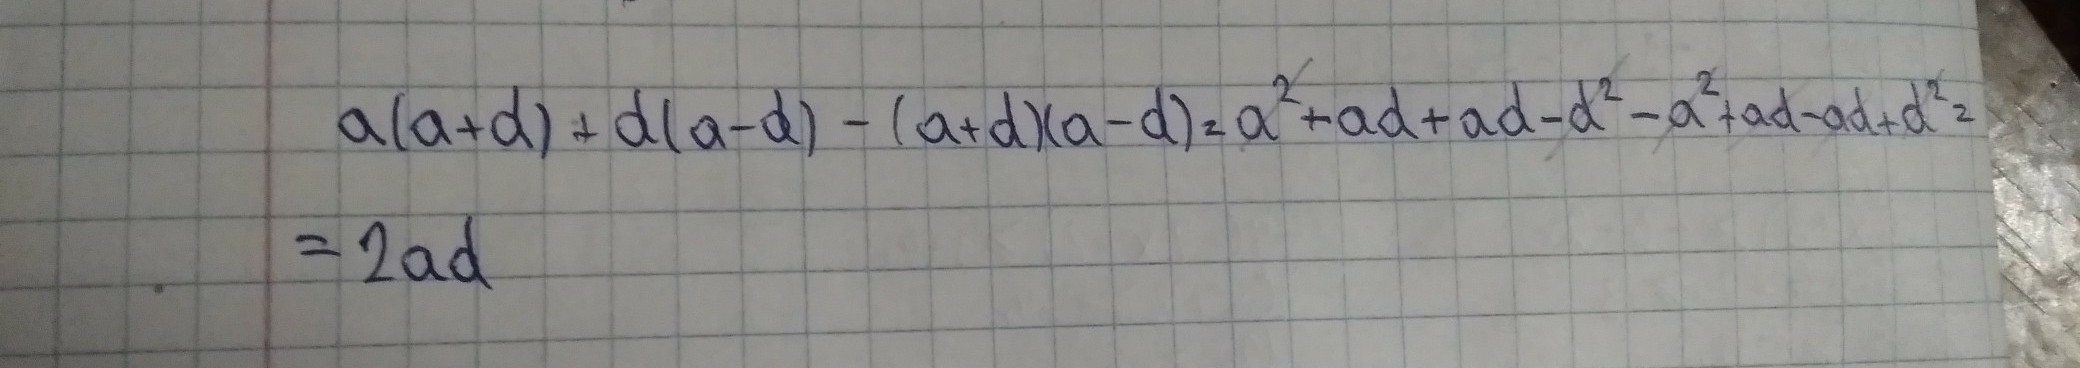 a(a+d)+d(a-d)-(a+d)(a-d)=a²+ad+ad-d²-a²+ad-ad+d²=
=2ad